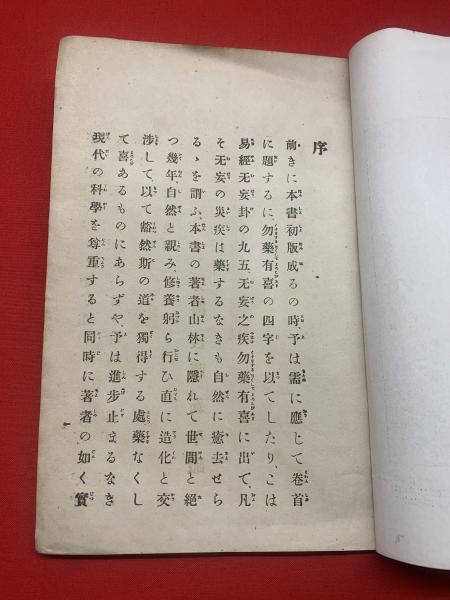 序
前きに本書初版成るの時、予は需に應じて卷首
に題するに、勿藥有喜の四字を以てしたり、こは
易經无妄卦の九五、无妄之疾勿藥有喜に出で、凡
そ无妄の災疾は藥するなきも自然に癒去せら
るゝを謂ふ、本書の著者山林に隱れて世間と絶
つ幾年、自然と親み、修養躬ら行ひ直に造化と交
渉して以て豁然斯の道を獨得する處藥なくし
て喜あるものにあらずや、予は進步止まるなき
現代の科學を尊重すると同時に著者の如く實